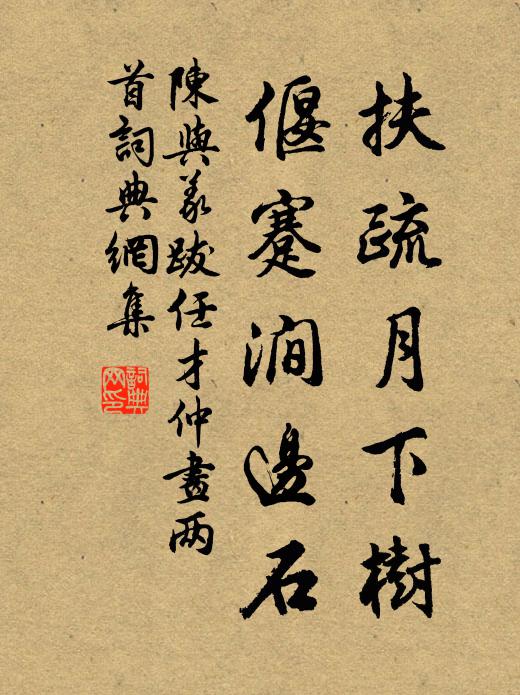 扶疏月下樹
偃蹇澗邊石
陳與義跋任才仲畫两
首詞典網集
詞典
网印